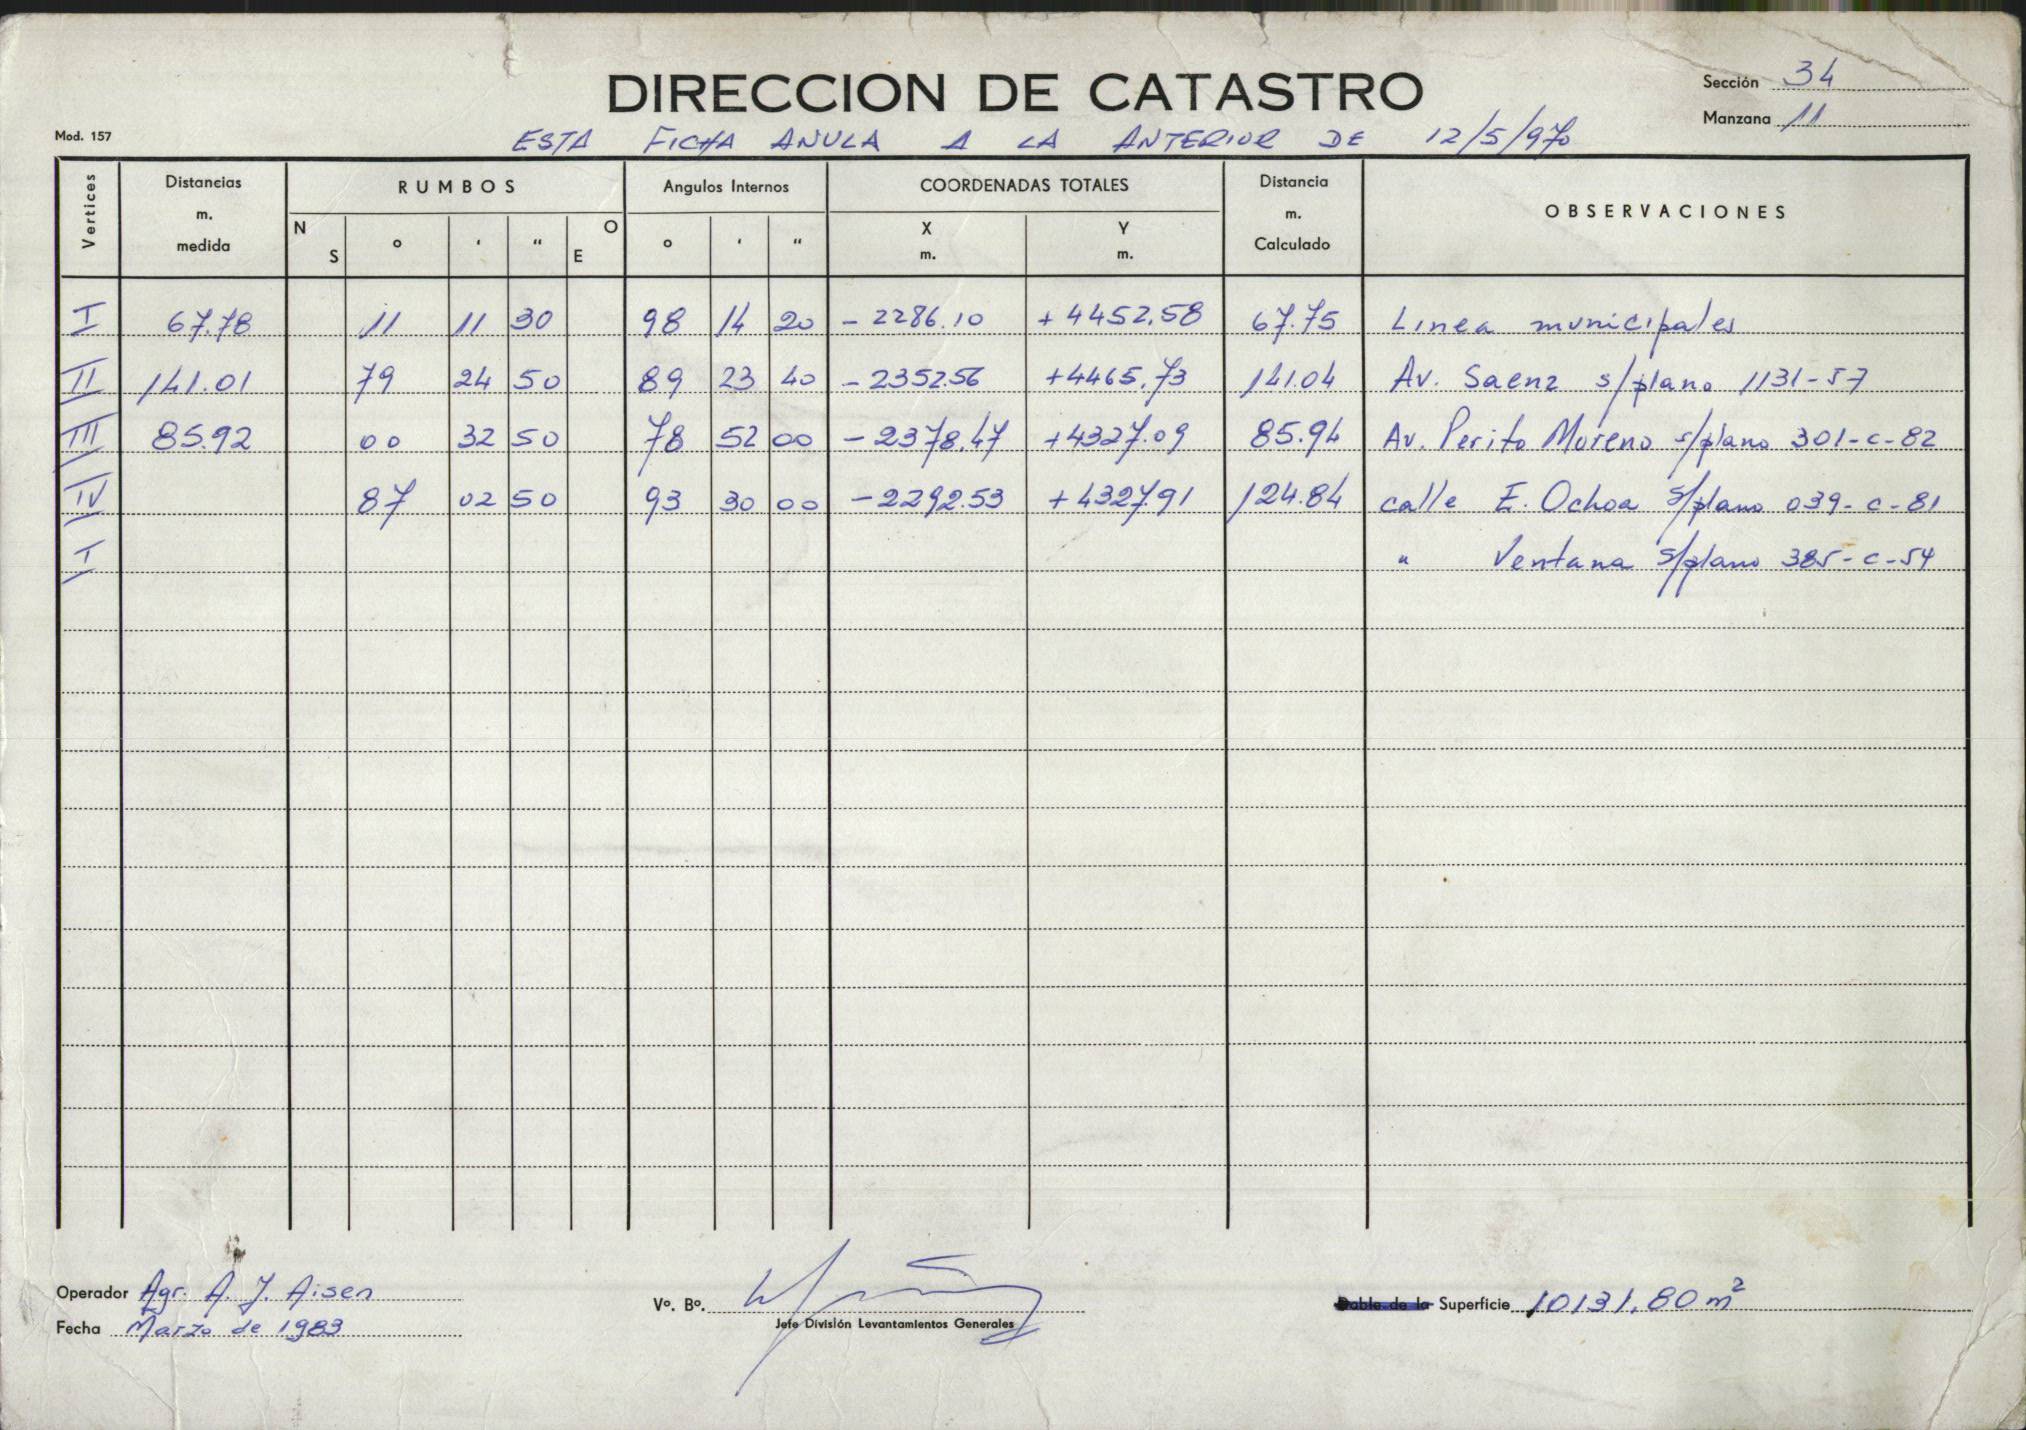 DIRECCION DE CATASTRO
Sección 34
Manzana 11
Mod. 157
ESTA FICHA ANULA A LA ANTERIOR DE 12/5/970
Vertices Distancias m. medida RUMBOS N S o ' " O E Angulos Internos o ' " COORDENADAS TOTALES X m. Y m. Distancia m. Calculado OBSERVACIONES
I 67.78 11 11 30 98 14 20 -2286.10 +4452.58 67.75 Linea municipales
II 141.01 79 24 50 89 23 40 -2352.56 +4465.73 141.04 Av. Saenz s/plano 1131-57
III 85.92 00 32 50 78 52 00 -2378.47 +4327.09 85.94 Av. Perito Moreno s/plano 301-c-82
IV 87 02 50 93 30 00 -2292.53 +4327.91 124.84 calle E. Ochoa s/plano 039-c-81
I " Ventana s/plano 385-c-54
Operador Agr. A. J. Aisen
Fecha Marzo de 1983
Vº. Bº.
Jefe División Levantamientos Generales
Doble de la Superficie 10131,80 m²